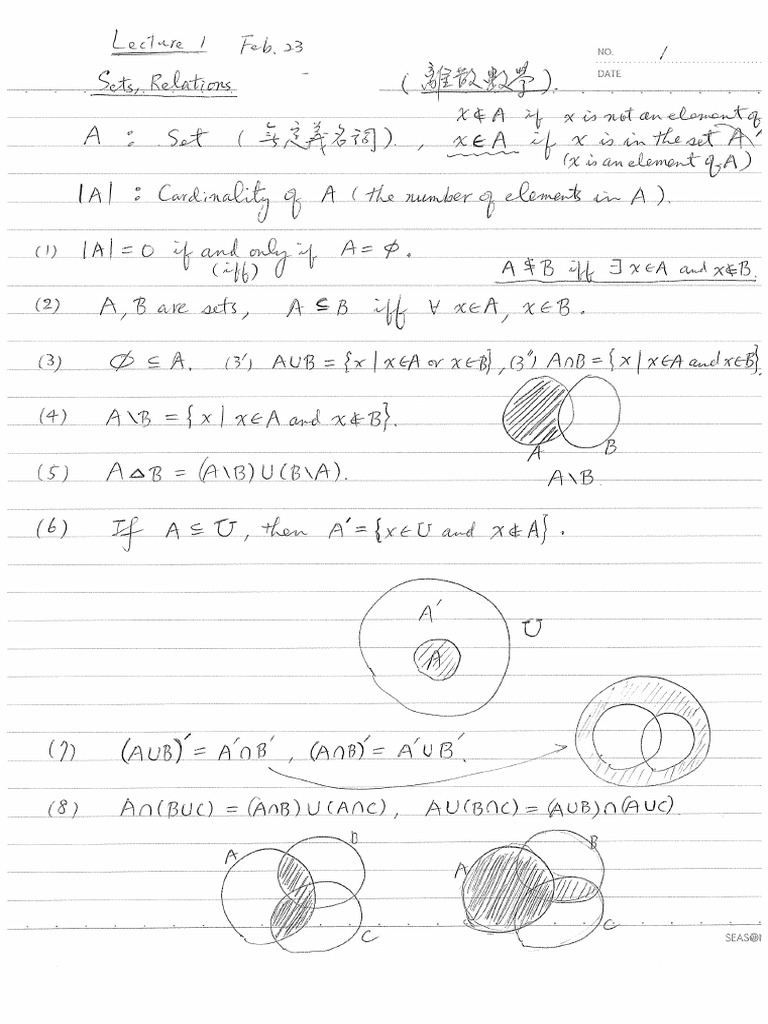 Lecture 1 Feb. 23
NO. 1
DATE
Sets, Relations (離散數學).
x∉A if x is not an element of
A : Set (無定義名詞), x∈A if x is in the set A
(x is an element of A)
|A| : Cardinality of A (the number of elements in A).
(1) |A| = 0 if and only if A = ∅.
(iff)
A ⊈ B iff ∃ x∈A and x∉B.
(2) A, B are sets, A ⊆ B iff ∀ x∈A, x∈B.
(3) ∅ ⊆ A. (3') A∪B = {x | x∈A or x∈B}, (3'') A∩B = {x | x∈A and x∈B}.
(4) A\B = {x | x∈A and x∉B}.
A B
(5) A△B = (A\B)∪(B\A).
A\B
(6) If A ⊆ U, then A' = {x∈U and x∉A}.
A'
U
A
(7) (A∪B)' = A'∩B', (A∩B)' = A'∪B'.
(8) A∩(B∪C) = (A∩B)∪(A∩C), A∪(B∩C) = (A∪B)∩(A∪C)
A B C
A B C